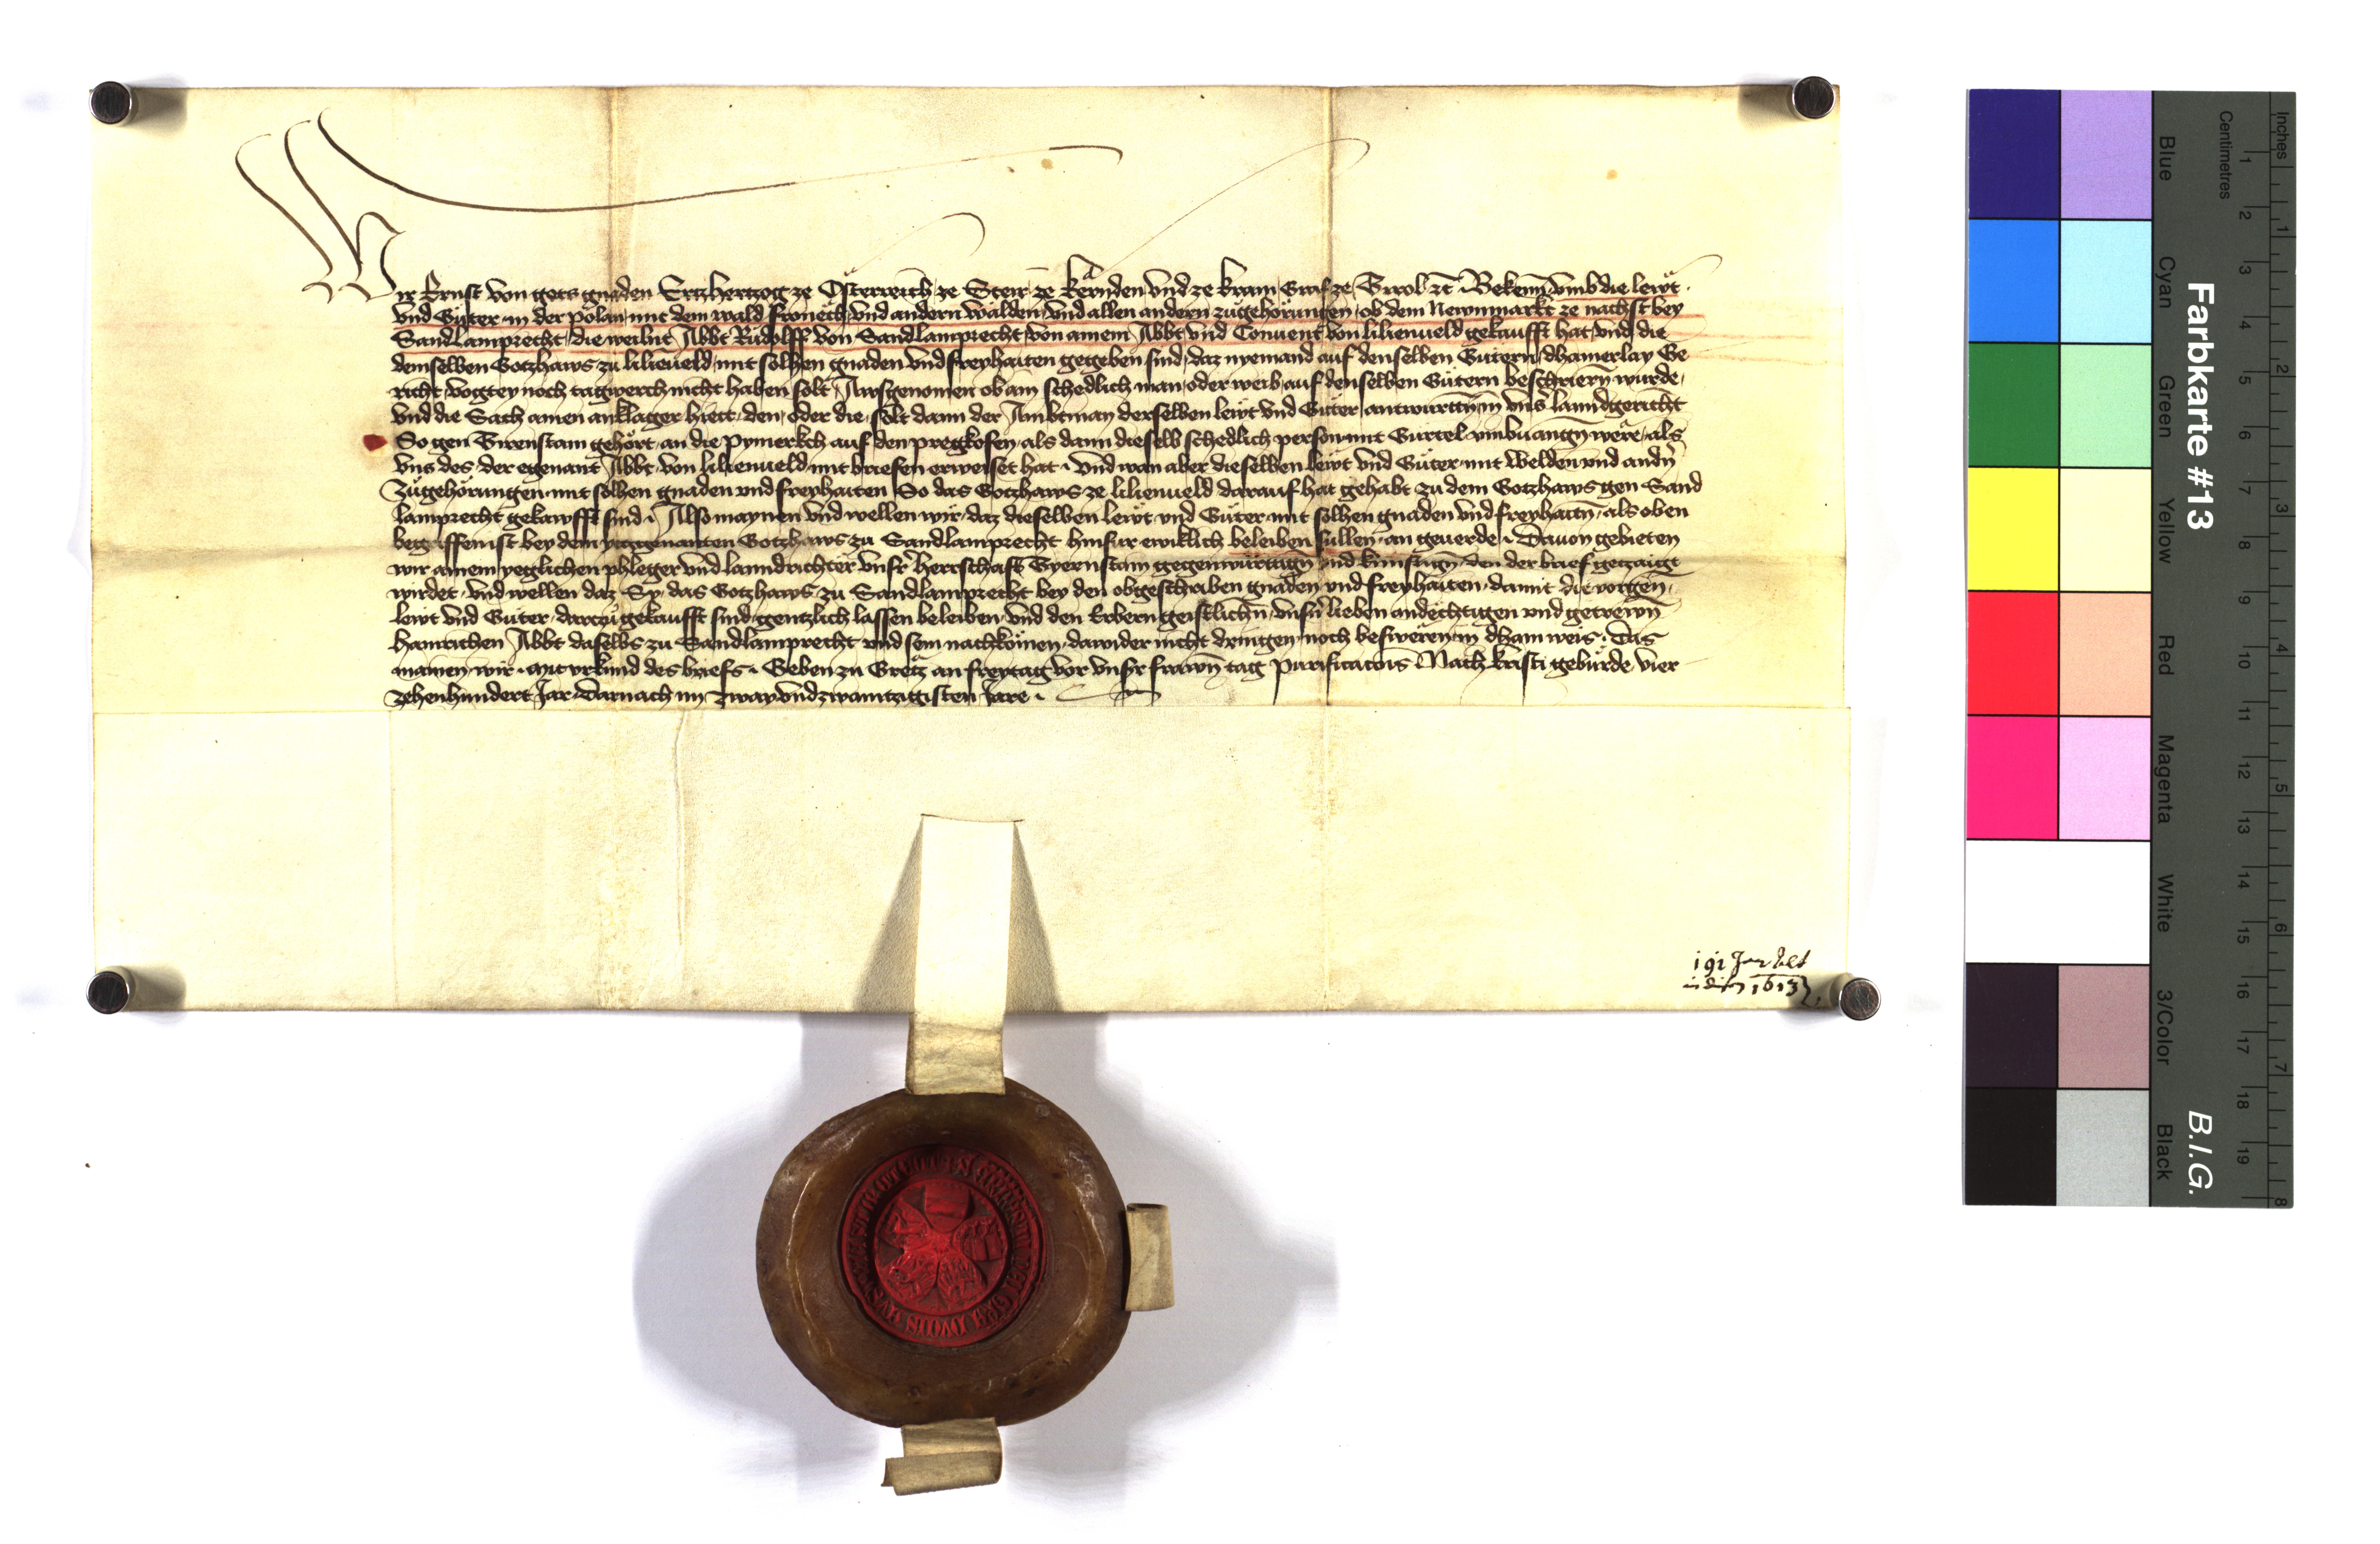 Wir Ernst von gots gnaden Ertzhertzog ze Österreich ze Steir ze Kernden und ze Krain Graf ze Tirol etc Bekenn umb die lewt
und Güter in der Polan mit dem wald Fronech und andern wälden und allen andern zugehörungen ob dem Newnmarkt ze nachst bey
Sandlamprecht die weilnt Abbt Rudolff von Sandlamprecht von ainem Abbt und Convent von lilienueld gekaufft hat und die
demselben Gotzhaws zu lilieueld mit solhen gnaden und freyhaiten gegeben sind daz nyemand auf denselben Gütern dhainerlay Ge
richt vogtey noch tagwerch nicht haben solt Ausgenomen ob ain schedlich man oder weib auf denselben Gütern beschriern wurde
und die Sach ainen anklager hiett den oder die solt dann der Ambtman derselben lewt und Güter antwurttn in uns lanndgericht
So gen Tirenstain gehört an die pymerkch auf den pregkofen als dann dieselb schedlich person mit Gürtel umbuangn were als
uns des der egenant Abbt von lilienueld mit briefen erweiset hat und wan aber dieselben lewt und Güter mit Welden und andn
zugehörungen mit solhen gnaden und freyhaiten So das Gotzhaws ze lilienueld darauf hat gehabt zu dem Gotzhaws gen Sand
lamprecht gekawfft sind Also maynen und wellen wir daz dieselben lewt und Güter mit solhen gnaden und freyhaitn als oben
begriffen ist bey dem yetzgenanten Gotzhaws zu Sandlamprecht hinfur ewiklich beleiben sullen an geuerde Dauon gebieten
wir ainem yeglichen phleger und lanndrichter unsr herrschafft Tyernstain gegenwürttign und künftign den der brief getzaigt
wirdet und wellen daz Sy das Gotzhaws zu Sandlamprecht bey den obgeschriben gnaden und freyhaiten damit die vorgen
lewt und Güter dartzu gekaufft sind gentzlich lassen beleiben und den Erbern geistlichn unsn lieben andechtigen und getrewn
Hainrichen Abbt daselbs zu Sandlamprecht und sein nachkomen dawider nicht dringen noch beswëren in dhain weis Das
mainen wir mit urkund des briefs Geben zu Gretz an freytag vor unsr frawn tag Purificatonis Nach kristi gebürde vier
zehenhundert Jar Darnach im zway und zwaintzigisten Jare
191 Jar alt
1613
Inches
Centimetres
Blue Cyan Green Yellow Red Magenta White 3/Color Black
1 2 3 4 5 6 7 8 9 10 11 12 13 14 15 16 17 18 19
1 2 3 4 5 6 7 8
Farbkarte #13
B.I.G.